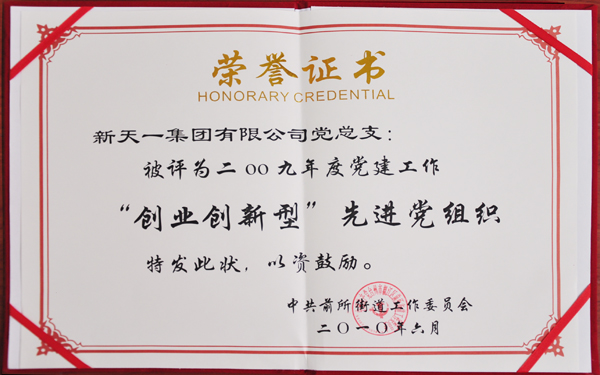 荣誉证书
HONORARY CREDENTIAL
新天一集团有限公司党总支：
被评为二00九年度党建工作
“创业创新型”先进党组织
特发此状，以资鼓励。
中共前所街道工作委员会
二〇一〇年六月